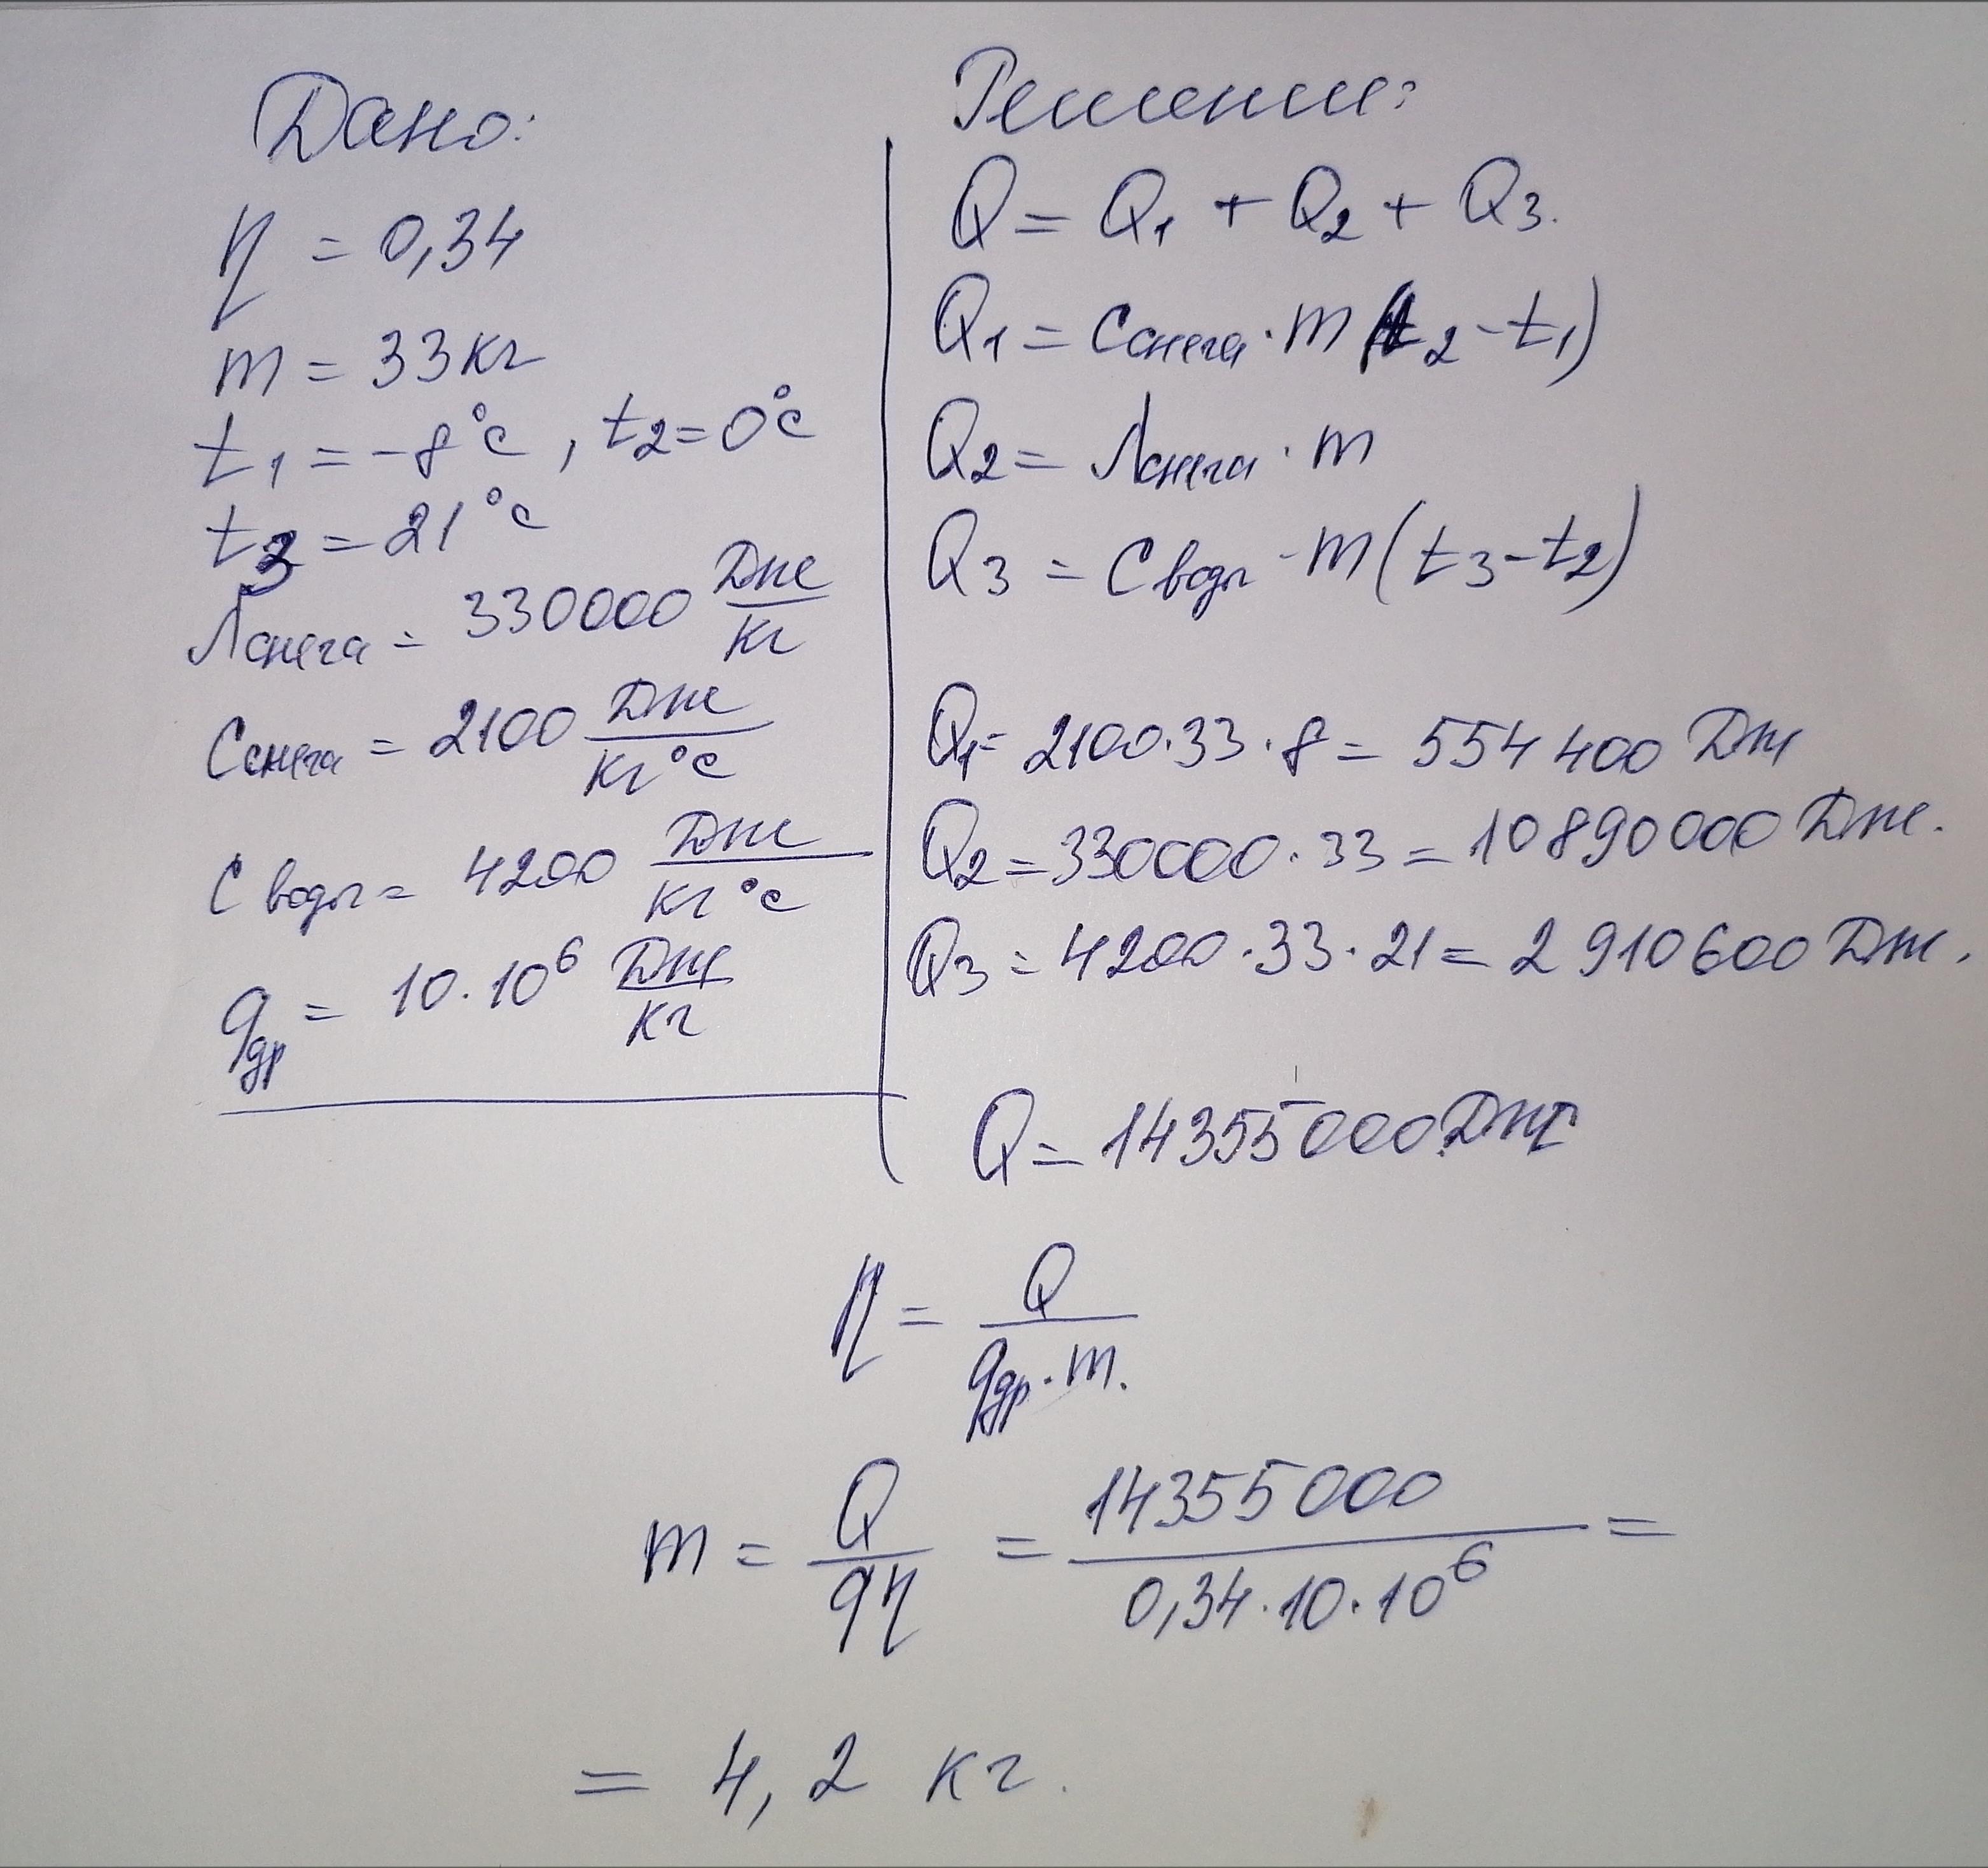 Дано:
η = 0,34
m = 33 кг
t₁ = -8°c, t₂ = 0°c
t₃ = 21°c
λснега = 330000 Дж/кг
Cснега = 2100 Дж/кг°c
C воды = 4200 Дж/кг°c
qдр = 10·10⁶ Дж/кг
Решение:
Q = Q₁ + Q₂ + Q₃.
Q₁ = Cснега · m (t₂ - t₁)
Q₂ = λснега · m
Q₃ = C воды · m (t₃ - t₂)
Q₁ = 2100·33·8 = 554 400 Дж
Q₂ = 330000·33 = 10890000 Дж.
Q₃ = 4200·33·21 = 2 910600 Дж.
Q = 14355000 Дж
η = Q/qдр·m.
m = Q/qη = 14355000/0,34·10·10⁶ =
= 4,2 кг.